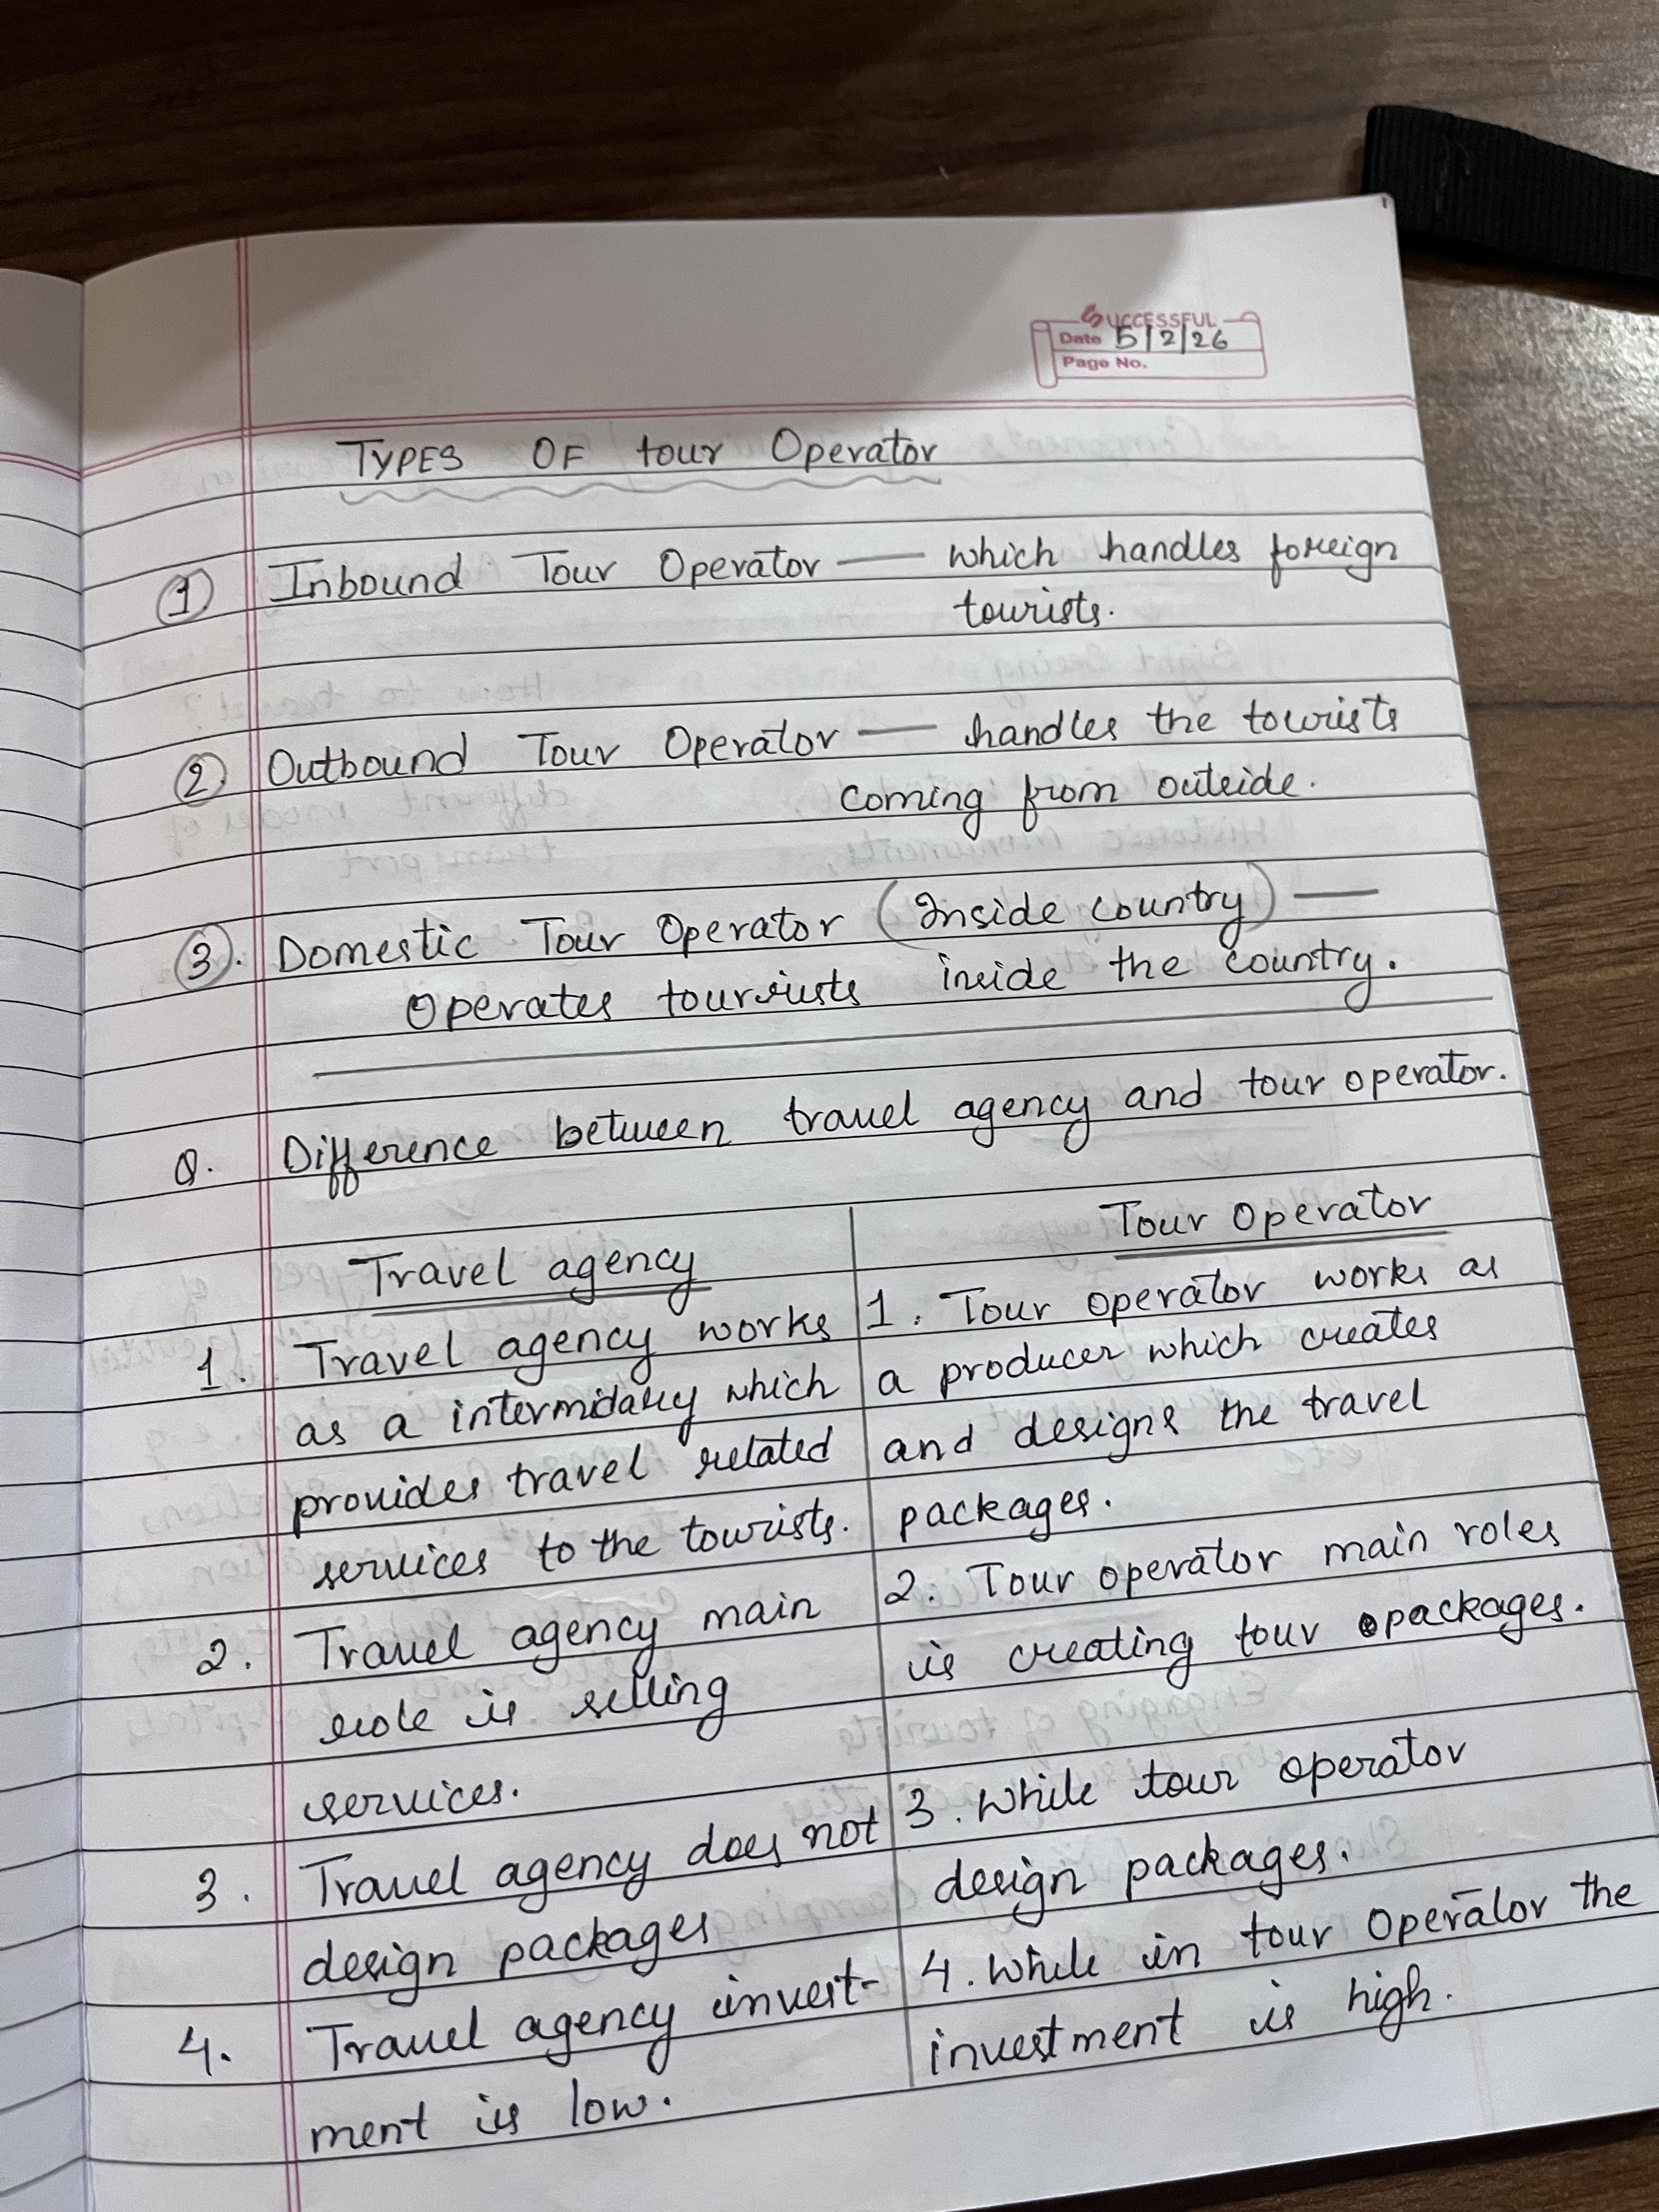 SUCCESSFUL
Date 5/2/26
Page No.
TYPES OF tour Operator
1 Inbound Tour Operator — which handles foreign
tourists.
2 Outbound Tour Operator — handles the tourists
coming from outside.
3. Domestic Tour Operator (Inside country) —
Operates tourists inside the country.
Q. Difference between travel agency and tour operator.
Travel agency
1. Travel agency works
as a intermidary which
provides travel related
services to the tourists.
2. Travel agency main
role is selling
services.
3. Travel agency does not
design packages
4. Travel agency invest-
ment is low.
Tour Operator
1. Tour operator works as
a producer which creates
and designs the travel
packages.
2. Tour operator main roles
is creating tour packages.
3. While tour operator
design packages.
4. While in tour Operator the
investment is high.